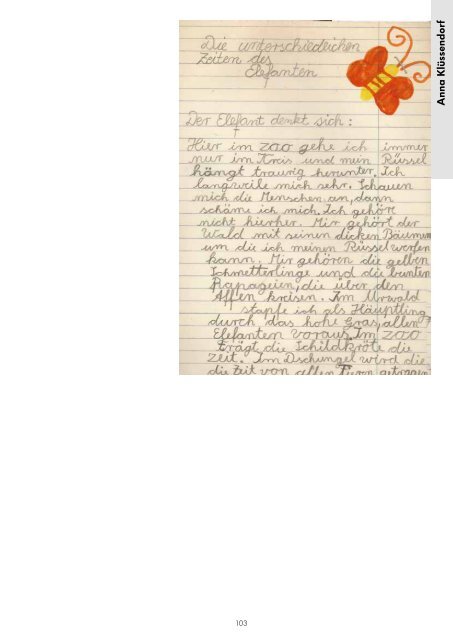 Anna Klüssendorf
Die unterschiedlichen
Zeiten des
Elefanten
Der Elefant denkt sich:
Hier im Zoo gehe ich immer
nur im Kreis und mein Rüssel
hängt traurig herunter. Ich
langweile mich sehr. Schauen
mich die Menschen an, dann
schäme ich mich. Ich gehöre
nicht hierher. Mir gehört der
Wald mit seinen dicken Bäumen
um die ich meinen Rüssel werfen
kann. Mir gehören die gelben
Schmetterlinge und die bunten
Papageien, die über den
Affen kreisen. Im Urwald
stapfe ich als Häuptling
durch das hohe Gras, allen
Elefanten voraus. Im Zoo
trägt die Schildkröte die
Zeit. Im Dschungel wird die
die Zeit von allen Tieren getragen
103